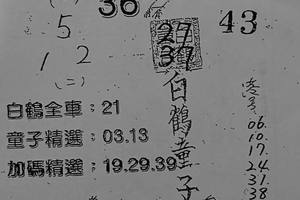 36
43
5
1 2
(二)
27
37
白鶴童子
白鶴全車：21
童子精選：03.13
加碼精選：19.29.39
06.
10.
17.
24.
31.
38